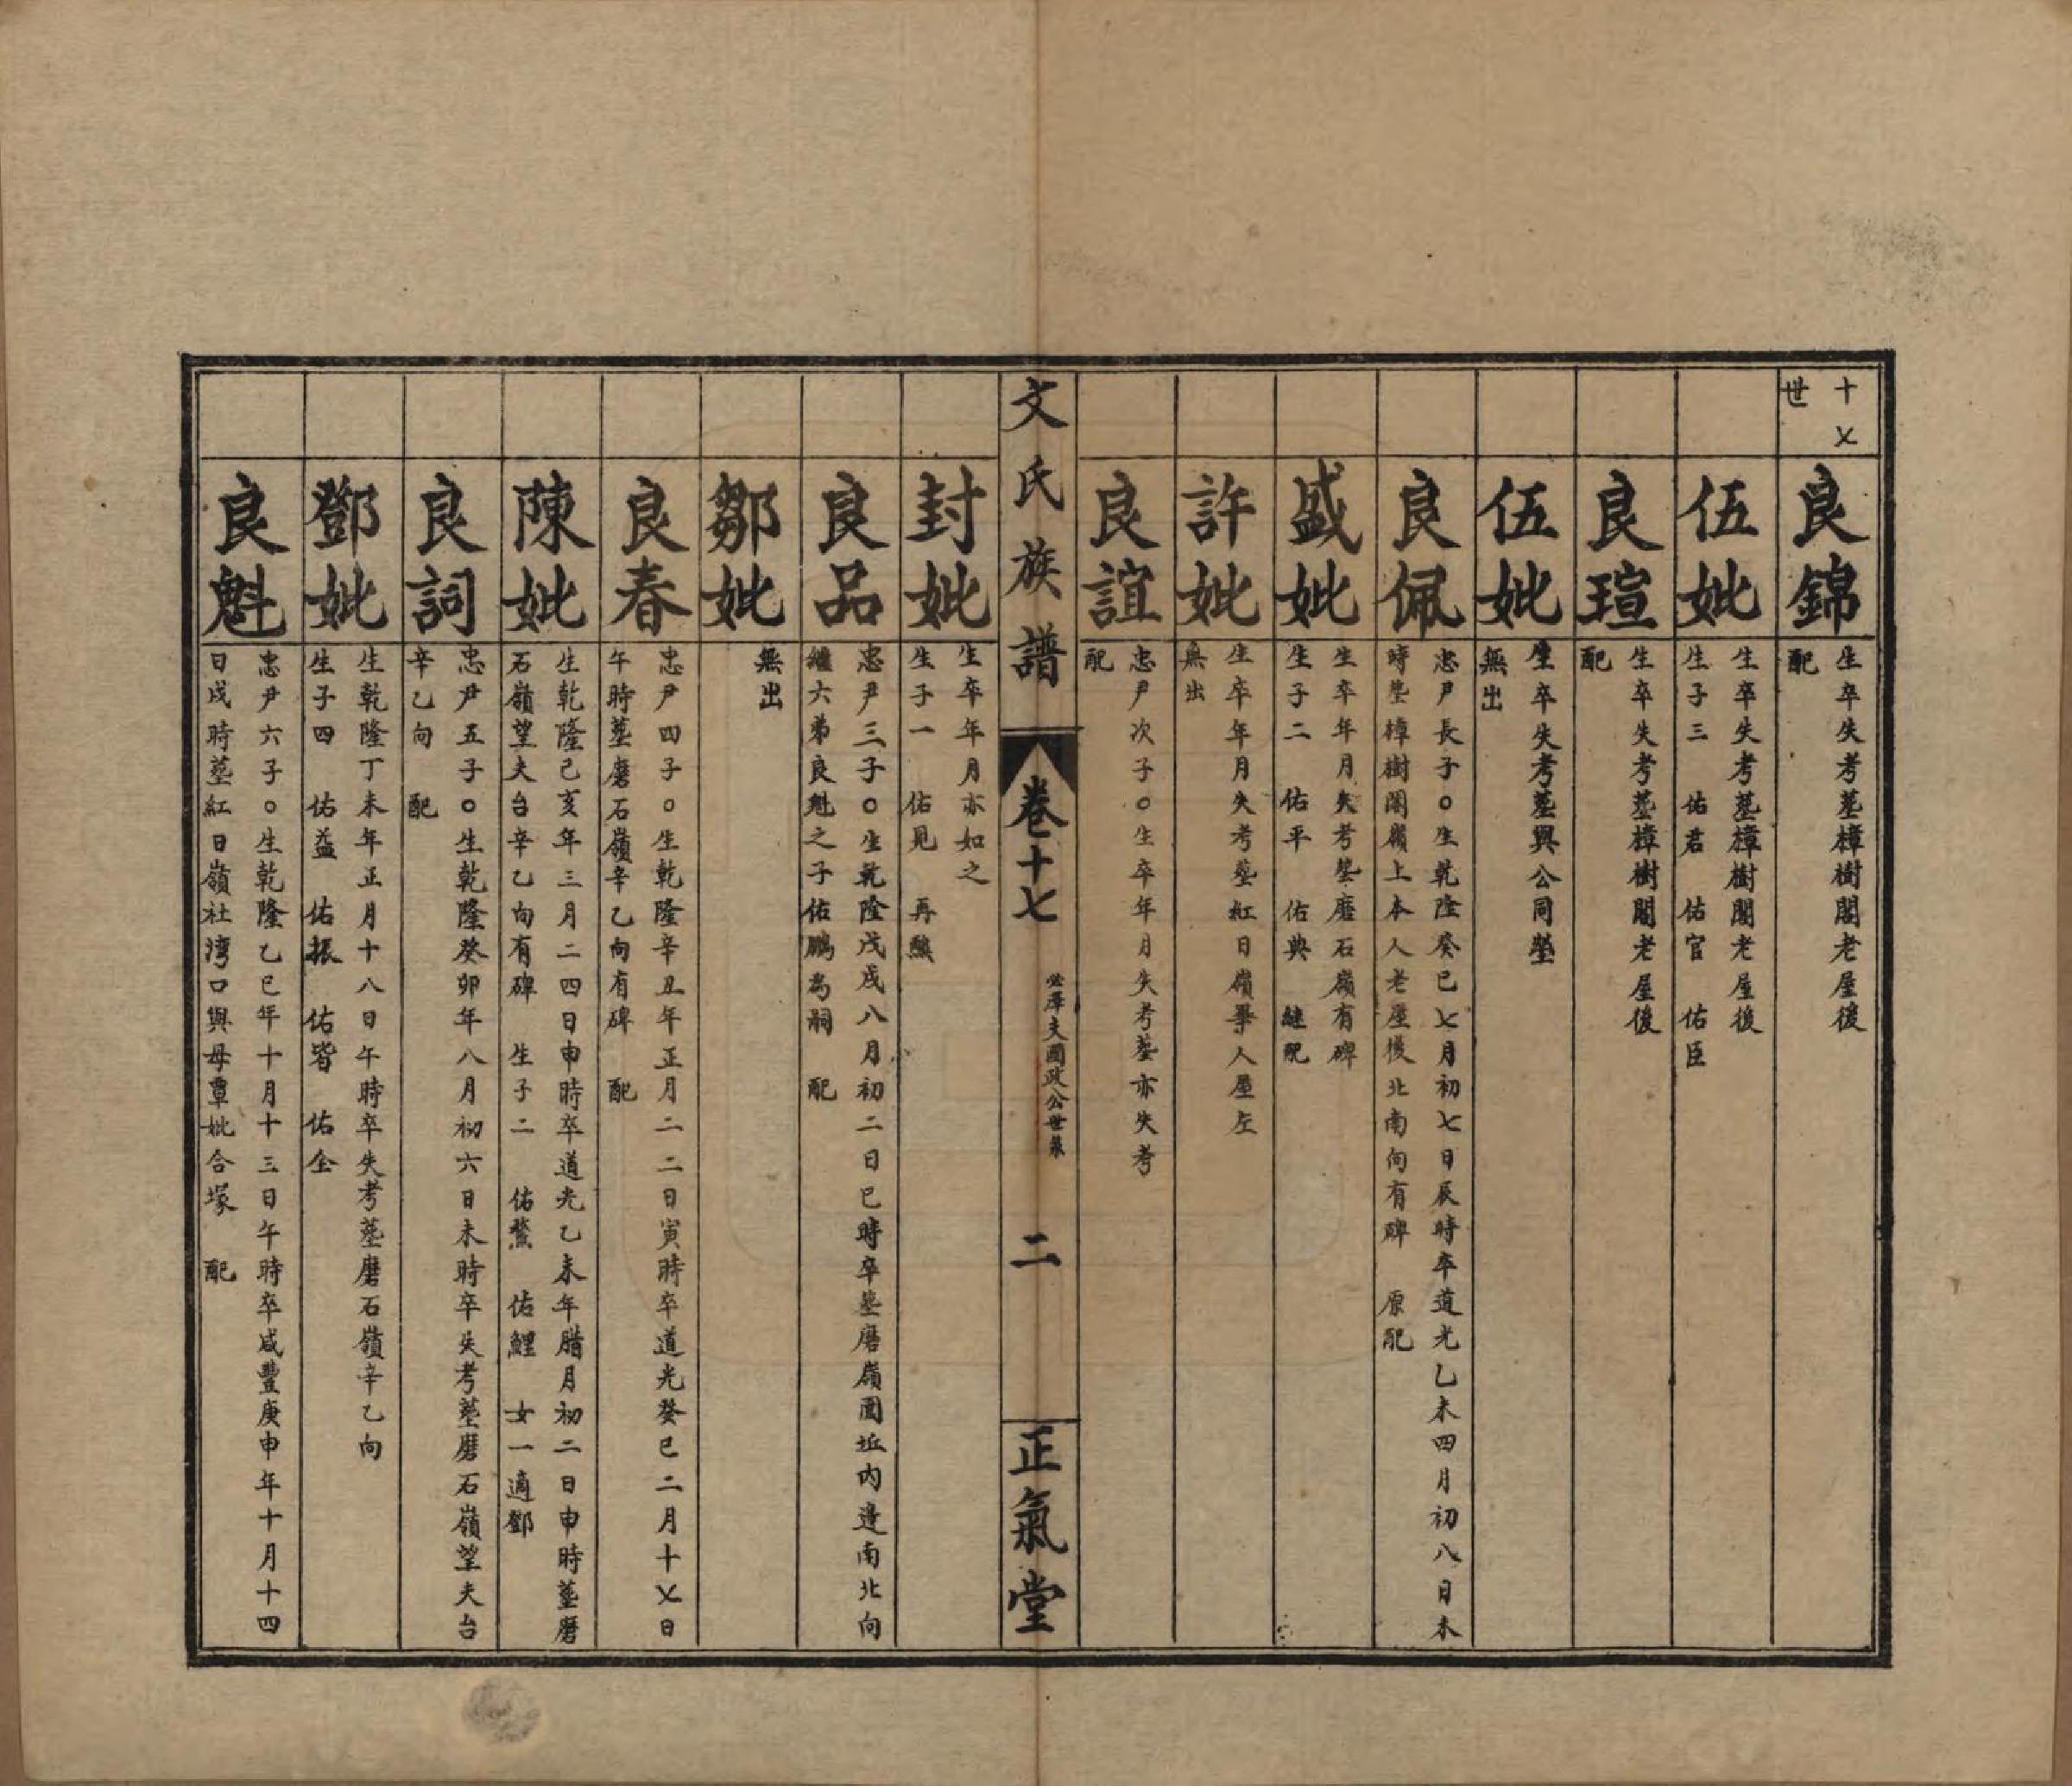 十七
世
良錦
生卒失考塟樟樹閣老屋後
配
伍妣
生卒失考塟樟樹閣老屋後
生子三　佑君　佑官　佑臣
良瑄
生卒失考塟樟樹閣老屋後
配
伍妣
生卒失考塟與公同塋
無出
良佩
忠尹長子○生乾隆癸巳七月初七日辰時卒道光乙未四月初八日未
時塟樟樹閣嶺上本人老屋後北南向有碑　原配
盛妣
生卒年月失考塟磨石嶺有碑
生子二　佑平　佑典　繼配
許妣
生卒年月失考塟紅日嶺畢人屋左
無出
良誼
忠尹次子○生卒年月失考塟亦失考
配
文氏族譜
卷十七
必澤夫國政公世系
二
正氣堂
封妣
生卒年月亦如之
生子一　佑見　再醮
良品
忠尹三子○生乾隆戊戌八月初二日巳時卒塟磨嶺園坵內邊南北向
繼六弟良魁之子佑鵬為嗣　配
鄒妣
無出
良春
忠尹四子○生乾隆辛丑年正月二二日寅時卒道光癸巳二月十七日
午時塟磨石嶺辛乙向有碑　配
陳妣
生乾隆己亥年三月二四日申時卒道光乙未年腊月初二日申時塟磨
石嶺望夫台辛乙向有碑　生子二　佑鰲　佑鯉　女一適鄧
良詞
忠尹五子○生乾隆癸卯年八月初六日未時卒失考塟磨石嶺望夫台
辛乙向　配
鄧妣
生乾隆丁未年正月十八日午時卒失考塟磨石嶺辛乙向
生子四　佑益　佑振　佑皆　佑全
良魁
忠尹六子○生乾隆乙巳年十月十三日午時卒咸豐庚申年十月十四
日戌時塟紅日嶺社湾口與母覃妣合塚　配